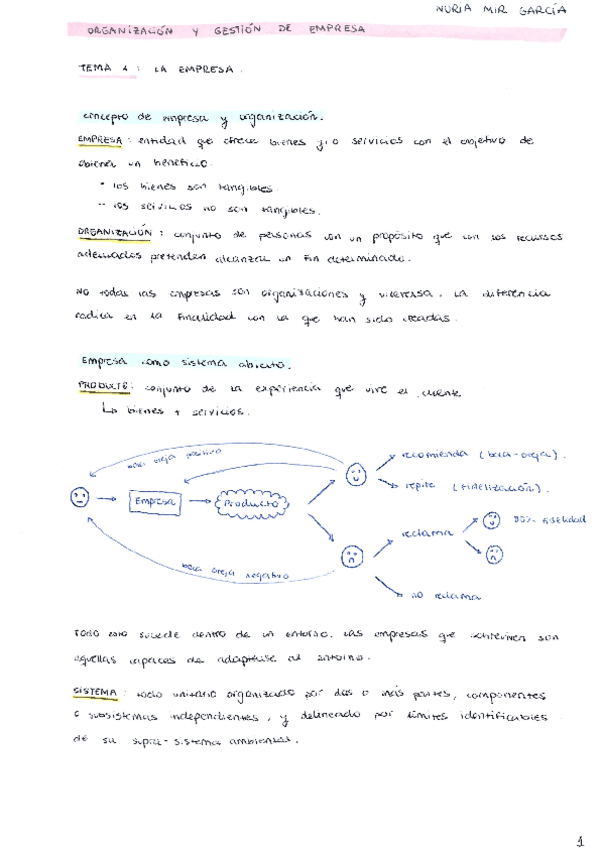 NURIA MIR GARCÍA
ORGANIZACIÓN Y GESTIÓN DE EMPRESA
TEMA 1 : LA EMPRESA.
concepto de empresa y organización.
EMPRESA : entidad que ofrece bienes y/o servicios con el objetivo de
obtener un beneficio.
los bienes son tangibles
los servicios no son tangibles.
ORGANIZACIÓN : conjunto de personas con un propósito que con sus recursos
adecuados pretenden alcanzar un fin determinado.
NO todas las empresas son organizaciones y viceversa. La diferencia
radica en la finalidad con la que han sido creadas.
Empresa como sistema abierto.
PRODUCTO : conjunto de la experiencia que vive el cliente
bienes + servicios.
boca oreja positivo
recomienda (boca-oreja).
repite (fidelización).
Empresa
Producto
reclama
fidelidad
boca oreja negativo
no reclama
TODO esto sucede dentro de un entorno. Las empresas que sobreviven son
aquellas capaces de adaptarse al entorno.
SISTEMA : todo unitario organizado por dos o más partes, componentes
o subsistemas independientes, y delineado por límites identificables
de su supra-sistema ambiental.
1